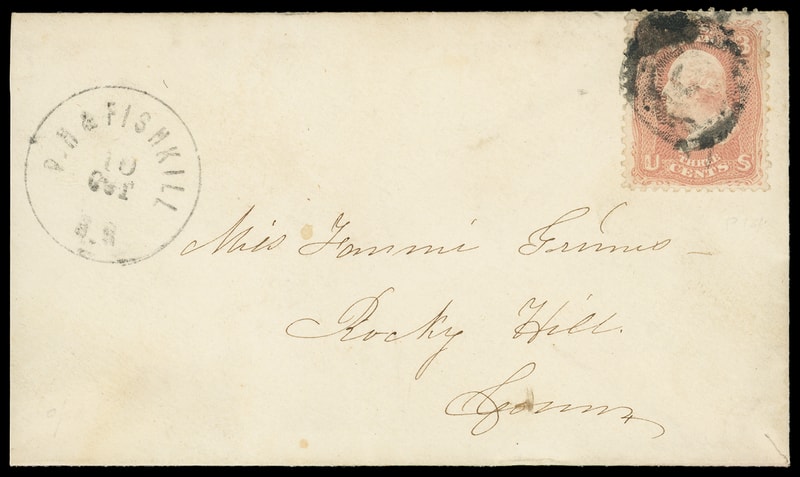 P. H & FISHKILL
10
OCT
R.R
3
U S
THREE
CENTS
Miss Fannie Grimes
Rocky Hill.
Conn